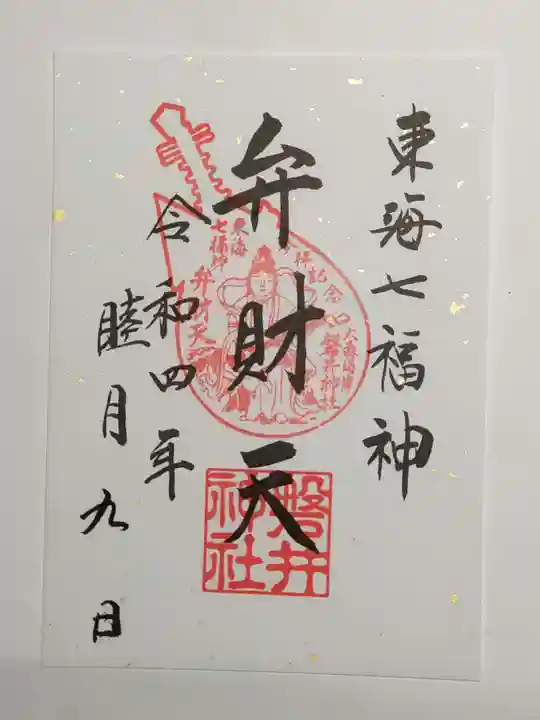 東海七福神
弁財天
令和四年
睦月九日
東海
七福神
弁財天
記念
磐井神社
磐井
神社